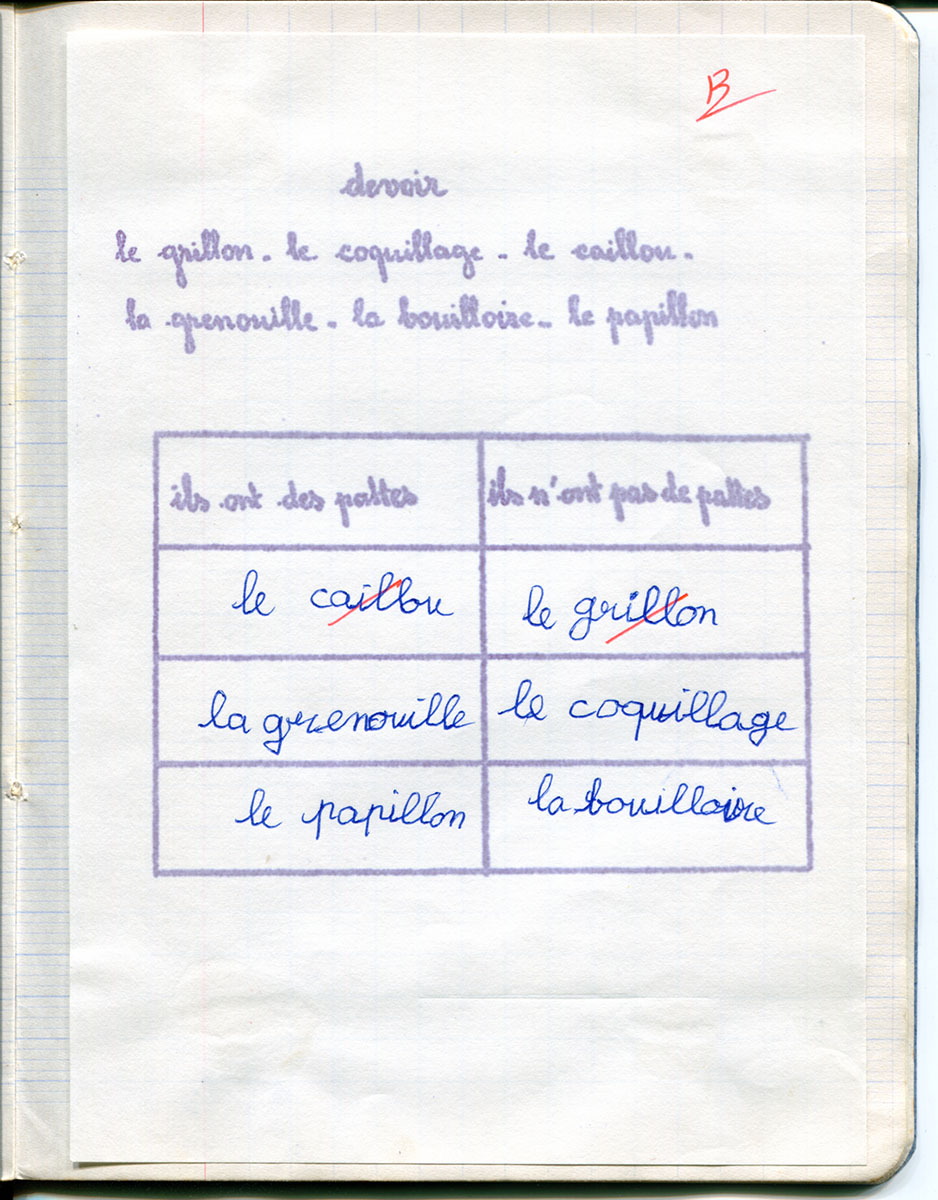 B
devoir
le grillon - le coquillage - le caillou -
la grenouille - la bouilloire - le papillon
ils ont des pattes
ils n'ont pas de pattes
le caillou
le grillon
la grenouille
le coquillage
le papillon
la bouilloire